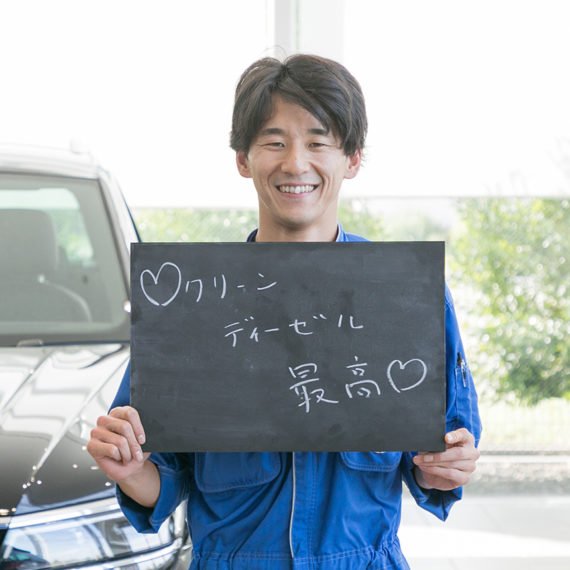 ♡クリーン
ディーゼル
最高♡